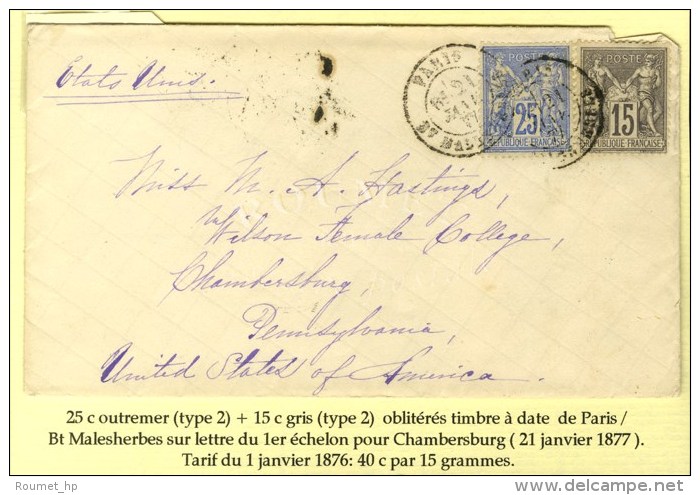 Etats Unis.
PARIS
Bd MALESHERBES
POSTE
25
REPUBLIQUE FRANCAISE
POSTE
15
REPUBLIQUE FRANCAISE
Miss M. A. Hastings,
Wilson Female College,
Chambersburg,
Pennsylvania,
United States of America.
25 c outremer (type 2) + 15 c gris (type 2) oblitérés timbre à date de Paris /
Bt Malesherbes sur lettre du 1er échelon pour Chambersburg ( 21 janvier 1877 ).
Tarif du 1 janvier 1876: 40 c par 15 grammes.
Roumet_hp
delcampe.net